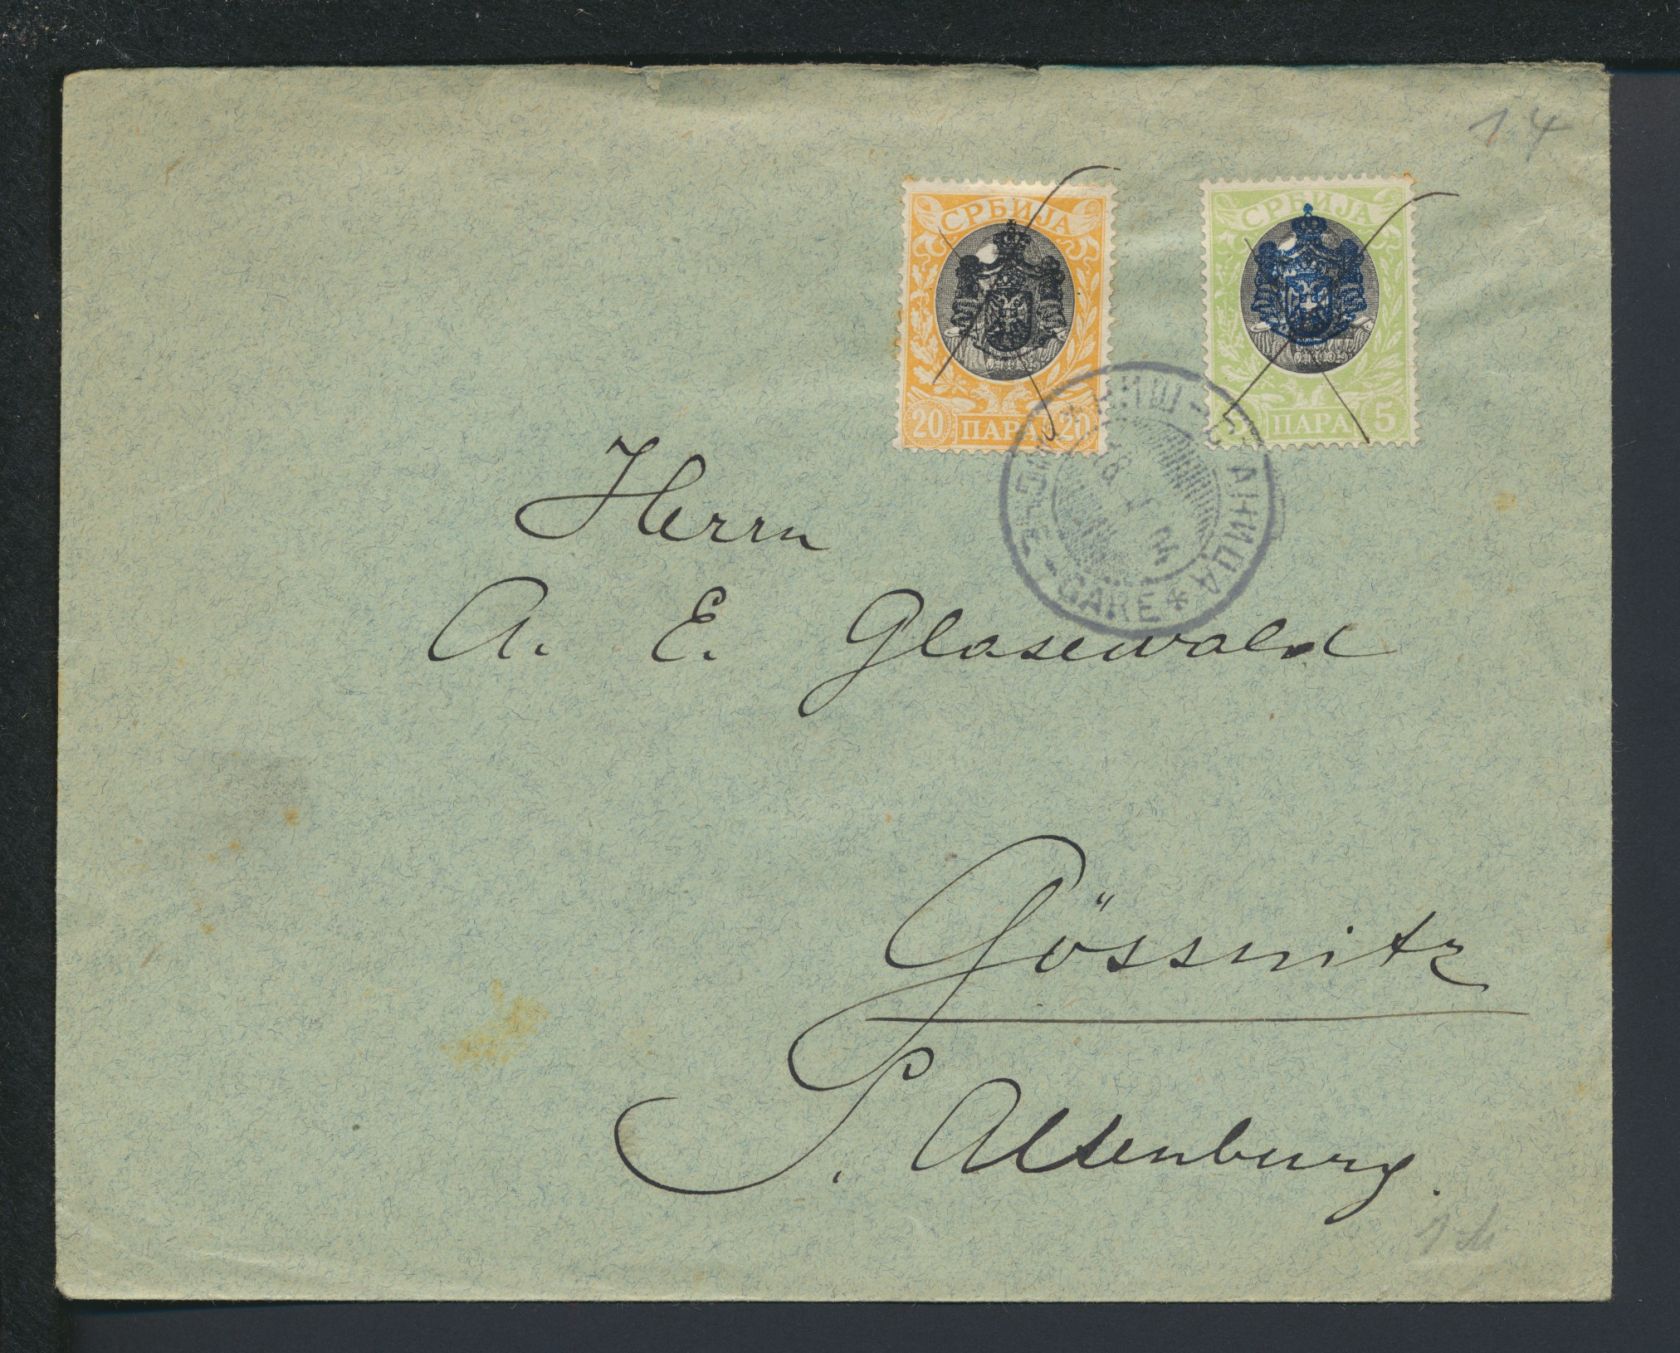 14
СРБИЈА
20 ПАРА 20
СРБИЈА
5 ПАРА 5
НИШ-СТАНИЦА
GARE
Herrn
A. E. Glasewald
Gössnitz
S. Altenburg.